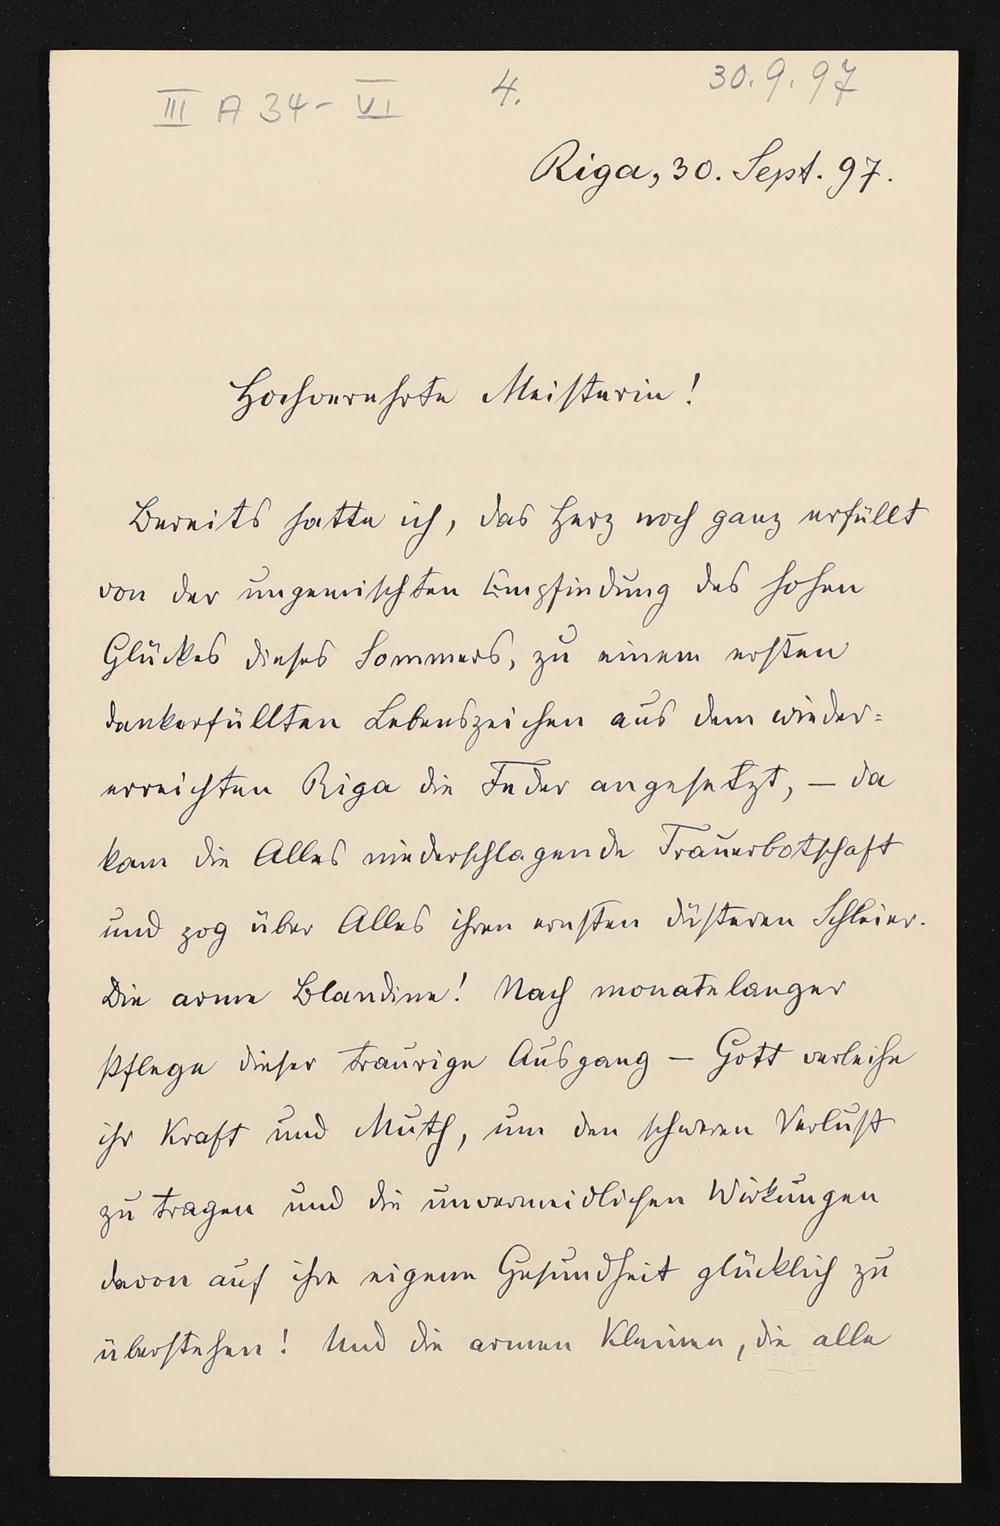 III A 34 - VI
4.
30.9.97
Riga, 30. Sept. 97.
Hochverehrte Meisterin!
Bereits hatte ich, das Herz noch ganz erfüllt
von der ungemischten Empfindung des hohen
Glückes dieses Sommers, zu einem ersten
dankerfüllten Lebenszeichen aus dem wieder=
erreichten Riga die Feder angesetzt, — da
kam die Alles niederschlagende Trauerbotschaft
und zog über Alles ihren ernsten düsteren Schleier.
Die arme Blandine! Nach monatelanger
Pflege dieser traurige Ausgang — Gott verleihe
ihr Kraft und Muth, um den schweren Verlust
zu tragen und die unvermeidlichen Wirkungen
davon auf ihre eigene Gesundheit glücklich zu
überstehen! Und die armen Kleinen, die alle